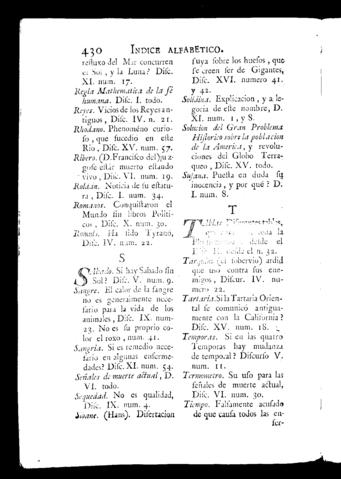 430 INDICE ALFABETICO.
refluxo del Mar concurren
el Sol, y la Luna? Disc.
XI. num. 17.
Regla Mathematica de la fè
humana. Disc. I. todo.
Reyes. Vicios de los Reyes an-
tiguos, Disc. IV. n. 21.
Rhodano. Phenomeno curio-
so, que sucedio en este
Rio, Disc. XV. num. 57.
Ribero. (D. Francisco del) ju
gose estàr muerto estando
vivo, Disc. VI. num. 19.
Roldàn. Noticia de su estatu-
ra, Disc. I. num. 34.
Romanos. Conquistaron el
Mundo sin libros Politi-
cos, Disc. X. num. 30.
Romulo. Ha sido Tyrano,
Disc. IV. num. 22.
S
Sabado. Si hay Sabado sin
Sol? Disc. V. num. 9.
Sangre. El calor de la sangre
no es generalmente nece-
sario para la vida de los
animales, Disc. IX. num.
23. No es su proprio co-
lor el roxo, num. 41.
Sangria. Si es remedio nece-
sario en algunas enferme-
dades? Disc. XI. num. 54.
Señales de muerte actual, D.
VI. todo.
Sequedad. No es qualidad,
Disc. IX. num. 4.
Sloane. (Hans). Disertacion
suya sobre los huesos, que
se creen ser de Gigantes,
Disc. XVI. numero 41.
y 42.
Solidina. Explicacion, y a le-
goria de este nombre, D.
XI. num. 1, y 8.
Solucion del Gran Problema
Historico sobre la poblacion
de la America, y revolu-
ciones del Globo Terra-
queo, Disc. XV. todo.
Susana. Puesta en duda su
inocencia, y por què? D.
I. num. 8.
T
desde el
desde el n. 32.
Tarquino (el sobervio) ardid
que usò contra sus ene-
migos, Discur. IV. nu-
mero 22.
Tartaria. Si la Tartaria Orien-
tal se comunicò antigua-
mente con la California?
Disc. XV. num. 18.
Temporas. Si en las quatro
Temporas hay mudanza
de temporal? Discurso V.
num. 11.
Termometro. Su uso para las
señales de muerte actual,
Disc. VI. num. 30.
Tiempo. Falsamente acusado
de que causa todos las en-
fer-